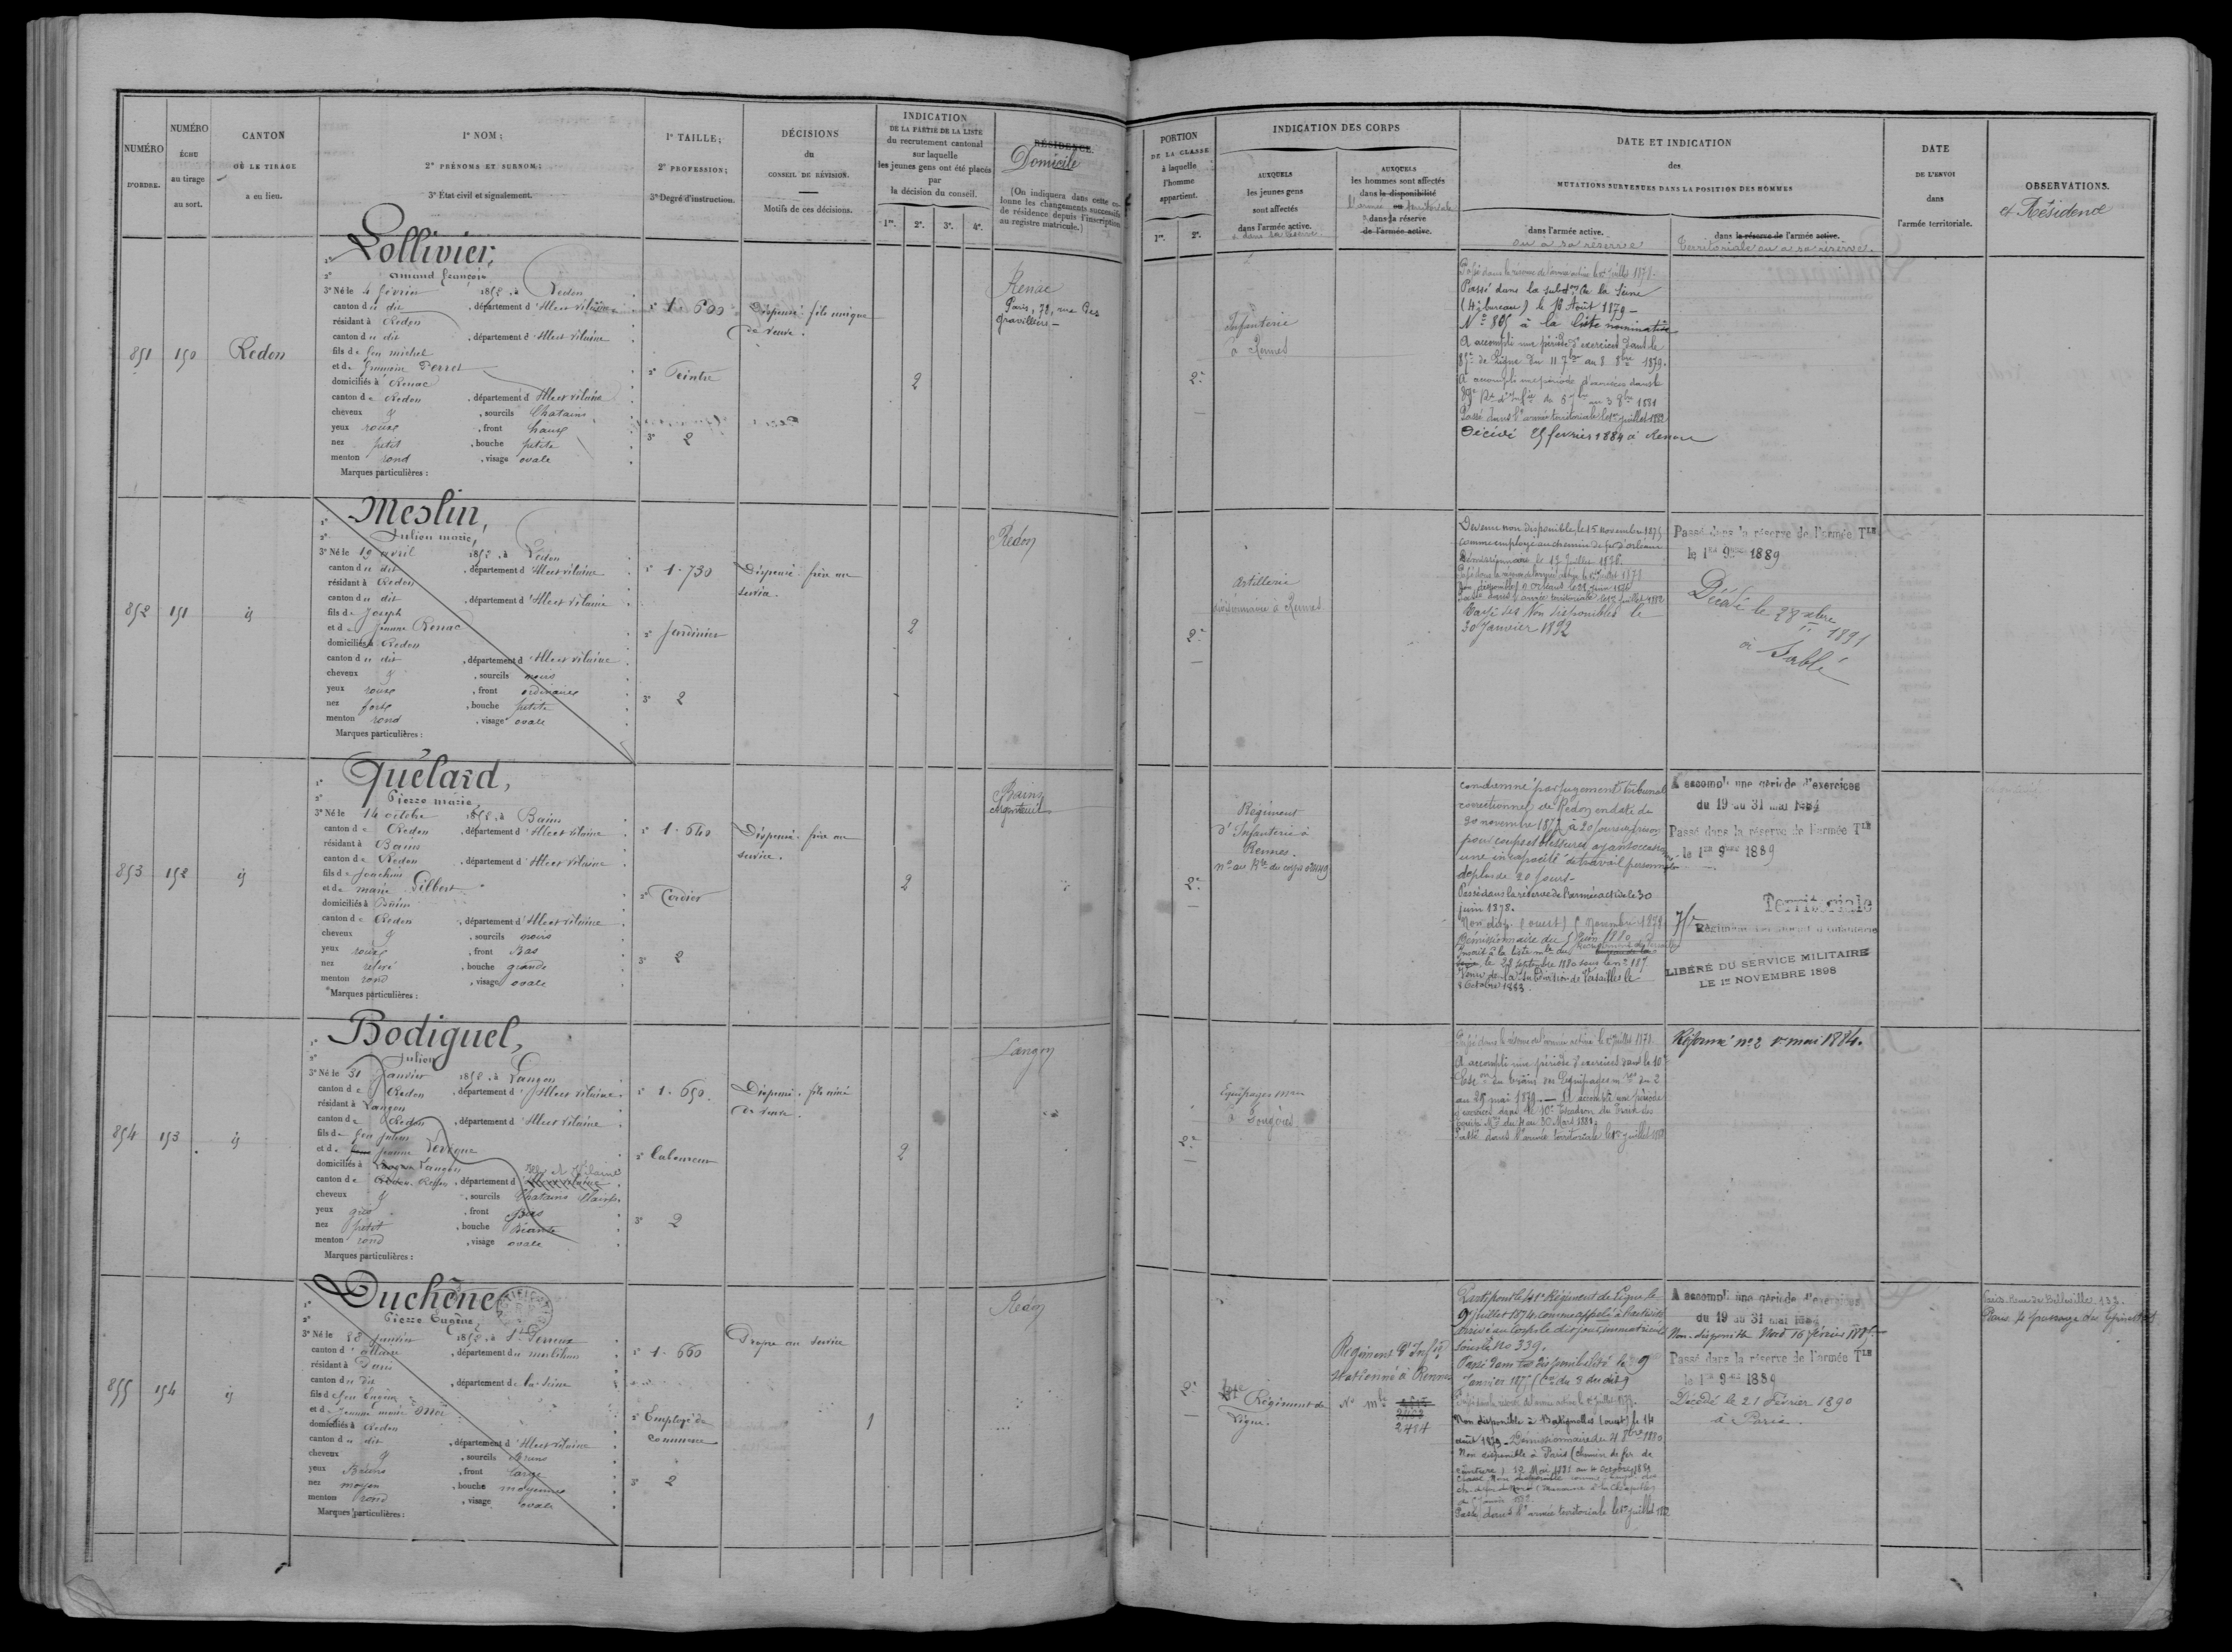 NUMÉRO
D'ORDRE.
NUMÉRO
ÉCHU
au tirage
au sort.
CANTON
OÙ LE TIRAGE
a eu lieu.
1° NOM;
2° PRÉNOMS ET SURNOM;
3° État civil et signalement.
1° TAILLE;
2° PROFESSION;
3° Degré d'instruction.
DÉCISIONS
du
CONSEIL DE RÉVISION.
Motifs de ces décisions.
INDICATION
DE LA PARTIE DE LA LISTE
du recrutement cantonal
sur laquelle
les jeunes gens ont été placés
par
la décision du conseil.
1re. 2e. 3e. 4e.
RÉSIDENCE.
Domicile
(On indiquera dans cette co-
lonne les changements successifs
de résidence depuis l'inscription
au registre matricule.)
PORTION
DE LA CLASSE
à laquelle
l'homme
appartient.
1re. 2e.
INDICATION DES CORPS
AUXQUELS
les jeunes gens
sont affectés
dans l'armée active.
AUXQUELS
les hommes sont affectés
dans la disponibilité
l'armée territoriale
dans la réserve
de l'armée active.
DATE ET INDICATION
des
MUTATIONS SURVENUES DANS LA POSITION DES HOMMES
dans l'armée active.
ou à sa réserve
dans la réserve de l'armée active.
Territoriale ou à sa réserve.
DATE
DE L'ENVOI
dans
l'armée territoriale.
OBSERVATIONS.
et Résidence
851 150 Redon
1° Lollivier,
2° amand françois
3° Né le 4 février 1852, à Redon
canton du dit, département d'Ille et vilaine
résidant à Redon
canton du dit, département d'Ille et vilaine
fils de feu michel
et de Perret
domiciliés à Renac
canton de Redon, département d'Ille et vilaine
cheveux et, sourcils Chatains
yeux roux, front haut
nez petit, bouche petite
menton rond, visage ovale
Marques particulières :
1° 1.600
2° Peintre
3° 2
Dispensé. fils unique
de veuve.
2
Renac
Paris, 78, rue des
Gravilliers
2e
Infanterie
à Rennes
Passé dans la réserve de l'armée active le 1er juillet 1878.
Passé dans la subdon de la Seine
(4e bureau) le 18 Août 1879 –
No 805 à la liste nominative
A accompli une période d'exercices dans le
de Ligne du 11 7bre au 8 8bre 1879.
A accompli une période d'exercices dans le
Passé dans l'armée territoriale le 1er juillet 1882
Décédé 25 février 1884 à Renac
852 151 id
1° Meslin,
2° Julien marie,
3° Né le 19 avril 1852, à Redon
canton du dit, département d'Ille et vilaine
résidant à Redon
canton du dit, département d'Ille et vilaine
fils de Joseph
et de Jeanne Renac
domiciliés à Redon
canton du dit, département d'Ille et vilaine
cheveux et, sourcils noirs
yeux roux, front ordinaire
nez fort, bouche petite
menton rond, visage ovale
Marques particulières :
1° 1.730
2° Jardinier
3° 2
Dispensé. frère au
service.
2
Redon
2e
Artillerie
divisionnaire à Rennes
Devenu non disponible, le 15 novembre 1875
comme employé au chemin de fer d'orléans
Démissionnaire le 12 Juillet 1876.
Passé dans l'armée territoriale le 1er juillet 1882
Rayé des Non disponibles le
30 Janvier 1892
Passé dans la réserve de l'armée Tle
le 1er 9bre 1889
Décédé le 28 xbre
1891
à Sablé
853 152 id
1° Quélard,
2° Pierre marie,
3° Né le 14 octobre 1852, à Bains
canton de Redon, département d'Ille et vilaine
résidant à Bains
canton de Redon, département d'Ille et vilaine
fils de Joachim
et de marie Gilbert
domiciliés à Bains
canton de Redon, département d'Ille et vilaine
cheveux et, sourcils noirs
yeux roux, front Bas
nez relevé, bouche grande
menton rond, visage ovale
Marques particulières :
1° 1.640
2° Cordier
3° 2
Dispensé. frère au
service.
2
Bains
Argenteuil
2e
Régiment
d'Infanterie à
Rennes.
condamné par jugement du tribunal
correctionnel de Redon en date du
20 novembre 1877 à 20 jours de prison
pour coups et blessures ayant occasionné
une incapacité de travail personnel
de plus de 20 jours.
Passé dans la réserve de l'armée active le 30
juin 1878.
Non disp. (ouest) 5 Novembre 1879
Démissionnaire du 5 Juin 1880
le 28 septembre 1880 sous le no 187
Venu de la Subdivision de Versailles le
8 Octobre 1883.
A accompli une période d'exercices
du 19 au 31 mai 1884
Passé dans la réserve de l'armée Tle
le 1er 9bre 1889
Territoriale
Régiment territorial d'infanterie
LIBÉRÉ DU SERVICE MILITAIRE
LE 1er NOVEMBRE 1898
854 153 id
1° Bodiguel,
2° Julien
3° Né le 31 Janvier 1852, à Langon
canton de Redon, département d'Ille et vilaine
résidant à Langon
canton de Redon, département d'Ille et vilaine
fils de feu julien
et de Jeanne Levêque
domiciliés à Langon
canton de Redon, département d'Ille et Vilaine
cheveux et, sourcils Chatains Clairs
yeux gris, front Bas
nez petit, bouche Béante
menton rond, visage ovale
Marques particulières :
1° 1.650
2° Laboureur
3° 2
Dispensé. fils aîné
de veuve.
2
Langon
2e
Equipages mres
à Fougères
Passé dans la réserve de l'armée active le 1er juillet 1878.
A accompli une période d'exercices dans le 10e
Escon du train des Equipages mres du 2
au 29 mai 1879. — A accompli une période
d'exercices dans le 10e Escadron du Train des
Equip. Mres du 4 au 30 Mars 1881.
Passé dans l'armée territoriale le 1er juillet 1882
Réformé no 2 1er mai 1884.
855 154 id
1° Duchêne
2° Pierre Eugène,
3° Né le 28 janvier 1852, à St Perreux
canton d'allaire, département du morbihan
résidant à Paris
canton du dit, département de la Seine
fils de feu Eugène
et de Jeanne marie Noé
domiciliés à Redon
canton du dit, département d'Ille et vilaine
cheveux et, sourcils Bruns
yeux Bruns, front large
nez moyen, bouche moyenne
menton rond, visage ovale
Marques particulières :
1° 1.660
2° Employé de
commerce
3° 2
Propre au service
1
Redon
2e
41e Régiment de
ligne.
Régiment d'Infie
stationné à Rennes
No mle
2484
Parti pour le 41e Régiment de Ligne le
9 juillet 1874 comme appelé à l'activité
Arrivé au corps le dit jour, immatriculé
sous le No 339.
Passé dans la disponibilité le 9
Janvier 1875
Non disponible à Batignolles (ouest) le 14
août 1879. Démissionnaire du 4 8bre 1880
Non disponible à Paris (Chemin de fer de
ceinture) 12 Mai 1881 au 4 Octobre 1881
Passé dans l'armée territoriale le 1er juillet 1882
A accompli une période d'exercices
du 19 au 31 mai 1884
Non disponible Nord 16 février 1885
Passé dans la réserve de l'armée Tle
le 1er 9bre 1889
Décédé le 21 Février 1890
à Paris.
Paris Rue de Belleville 133.